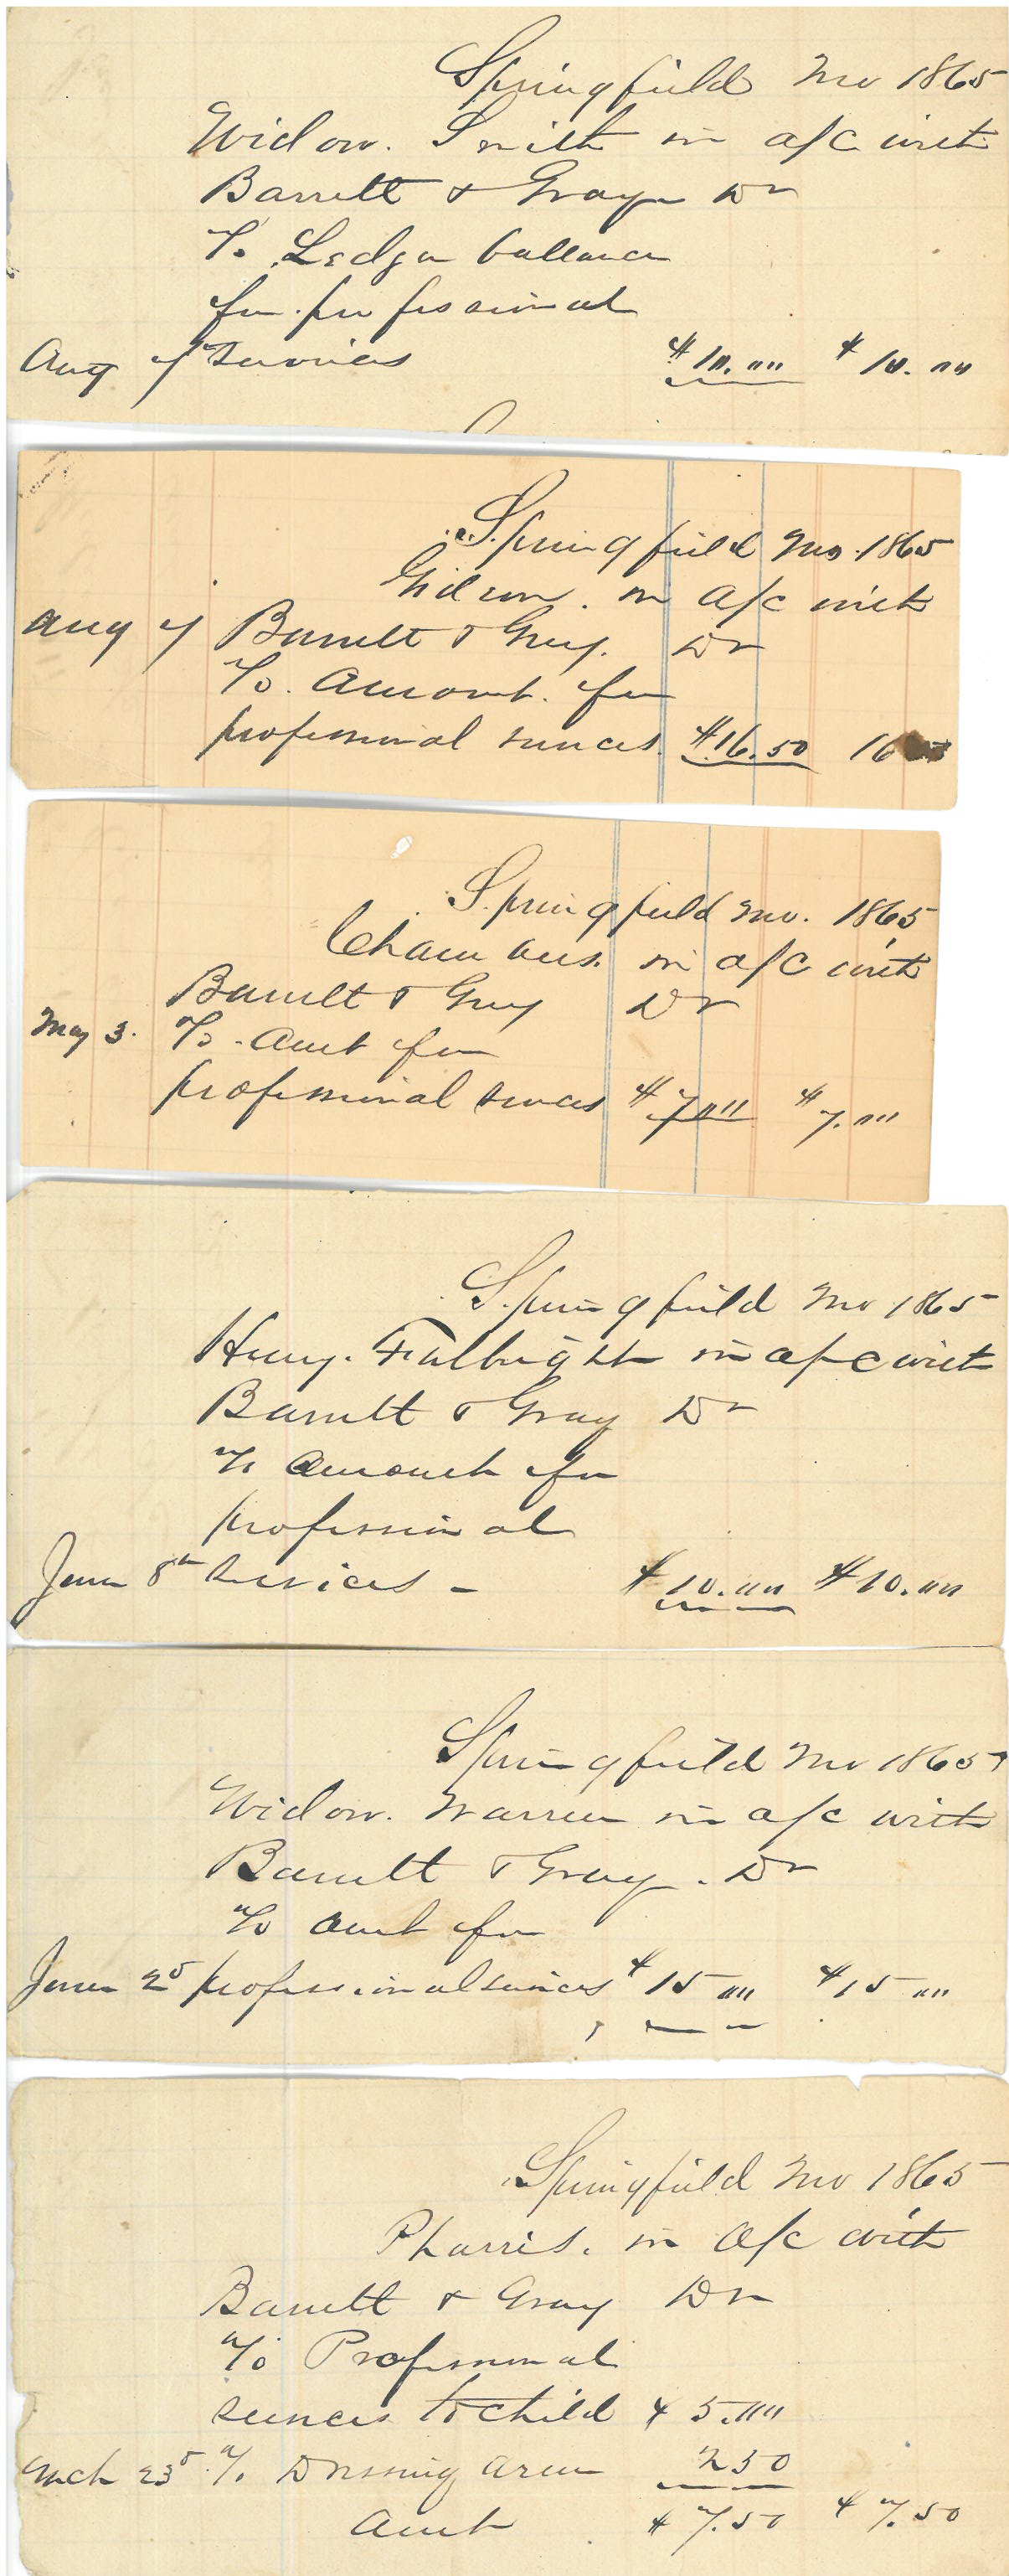 Springfield Mo 1865
Widow. Smith in a/c with
Barrett & Gray Dr
To Ledger ballance
for professional
Aug 7 Services $10.00 $10.00
Springfield Mo. 1865
in a/c with
Aug 7 Barrett & Gray. Dr
To Amount for
professional services $16.50 16
Springfield Mo. 1865
in a/c with
Barrett & Gray Dr
May 3. To Amt for
professional services $7.00 $7.00
Springfield Mo 1865
Henry. Fulbright in a/c with
Barrett & Gray Dr
To Amount for
professional
June 8th Services - $10.00 $10.00
Springfield Mo 1865
Widow. Warren in a/c with
Barrett & Gray. Dr
To Amt for
June professional services $15 00 $15 00
Springfield Mo 1865
Pharris. in a/c with
Barrett & Gray Dr
To Professional
services to child $ 5.00
Mch 23d To Dressing arm 2 50
Amt $7.50 $7.50